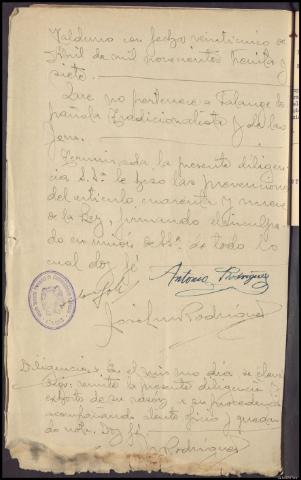 Valduno con fecha veinticinco de
Abril de mil novecientos treinta y
siete.
Que no pertenece a Falange Es
pañola Tradicionalista y de las
Jons.
Terminada la presente diligen
cia S.Sª le hizo las prevenciones
del artículo cuarenta y nueve
de la Ley, firmando el inculpa
do en unión de SSª de todo lo
cual doy fé
Antonio Rodríguez
José Luis Rodríguez
Diligencia. En el mismo día se
remite la presente diligencia y
exhorto de su razón a su procedencia
acompañando atento oficio y queda
nota. Doy fé
Rodríguez